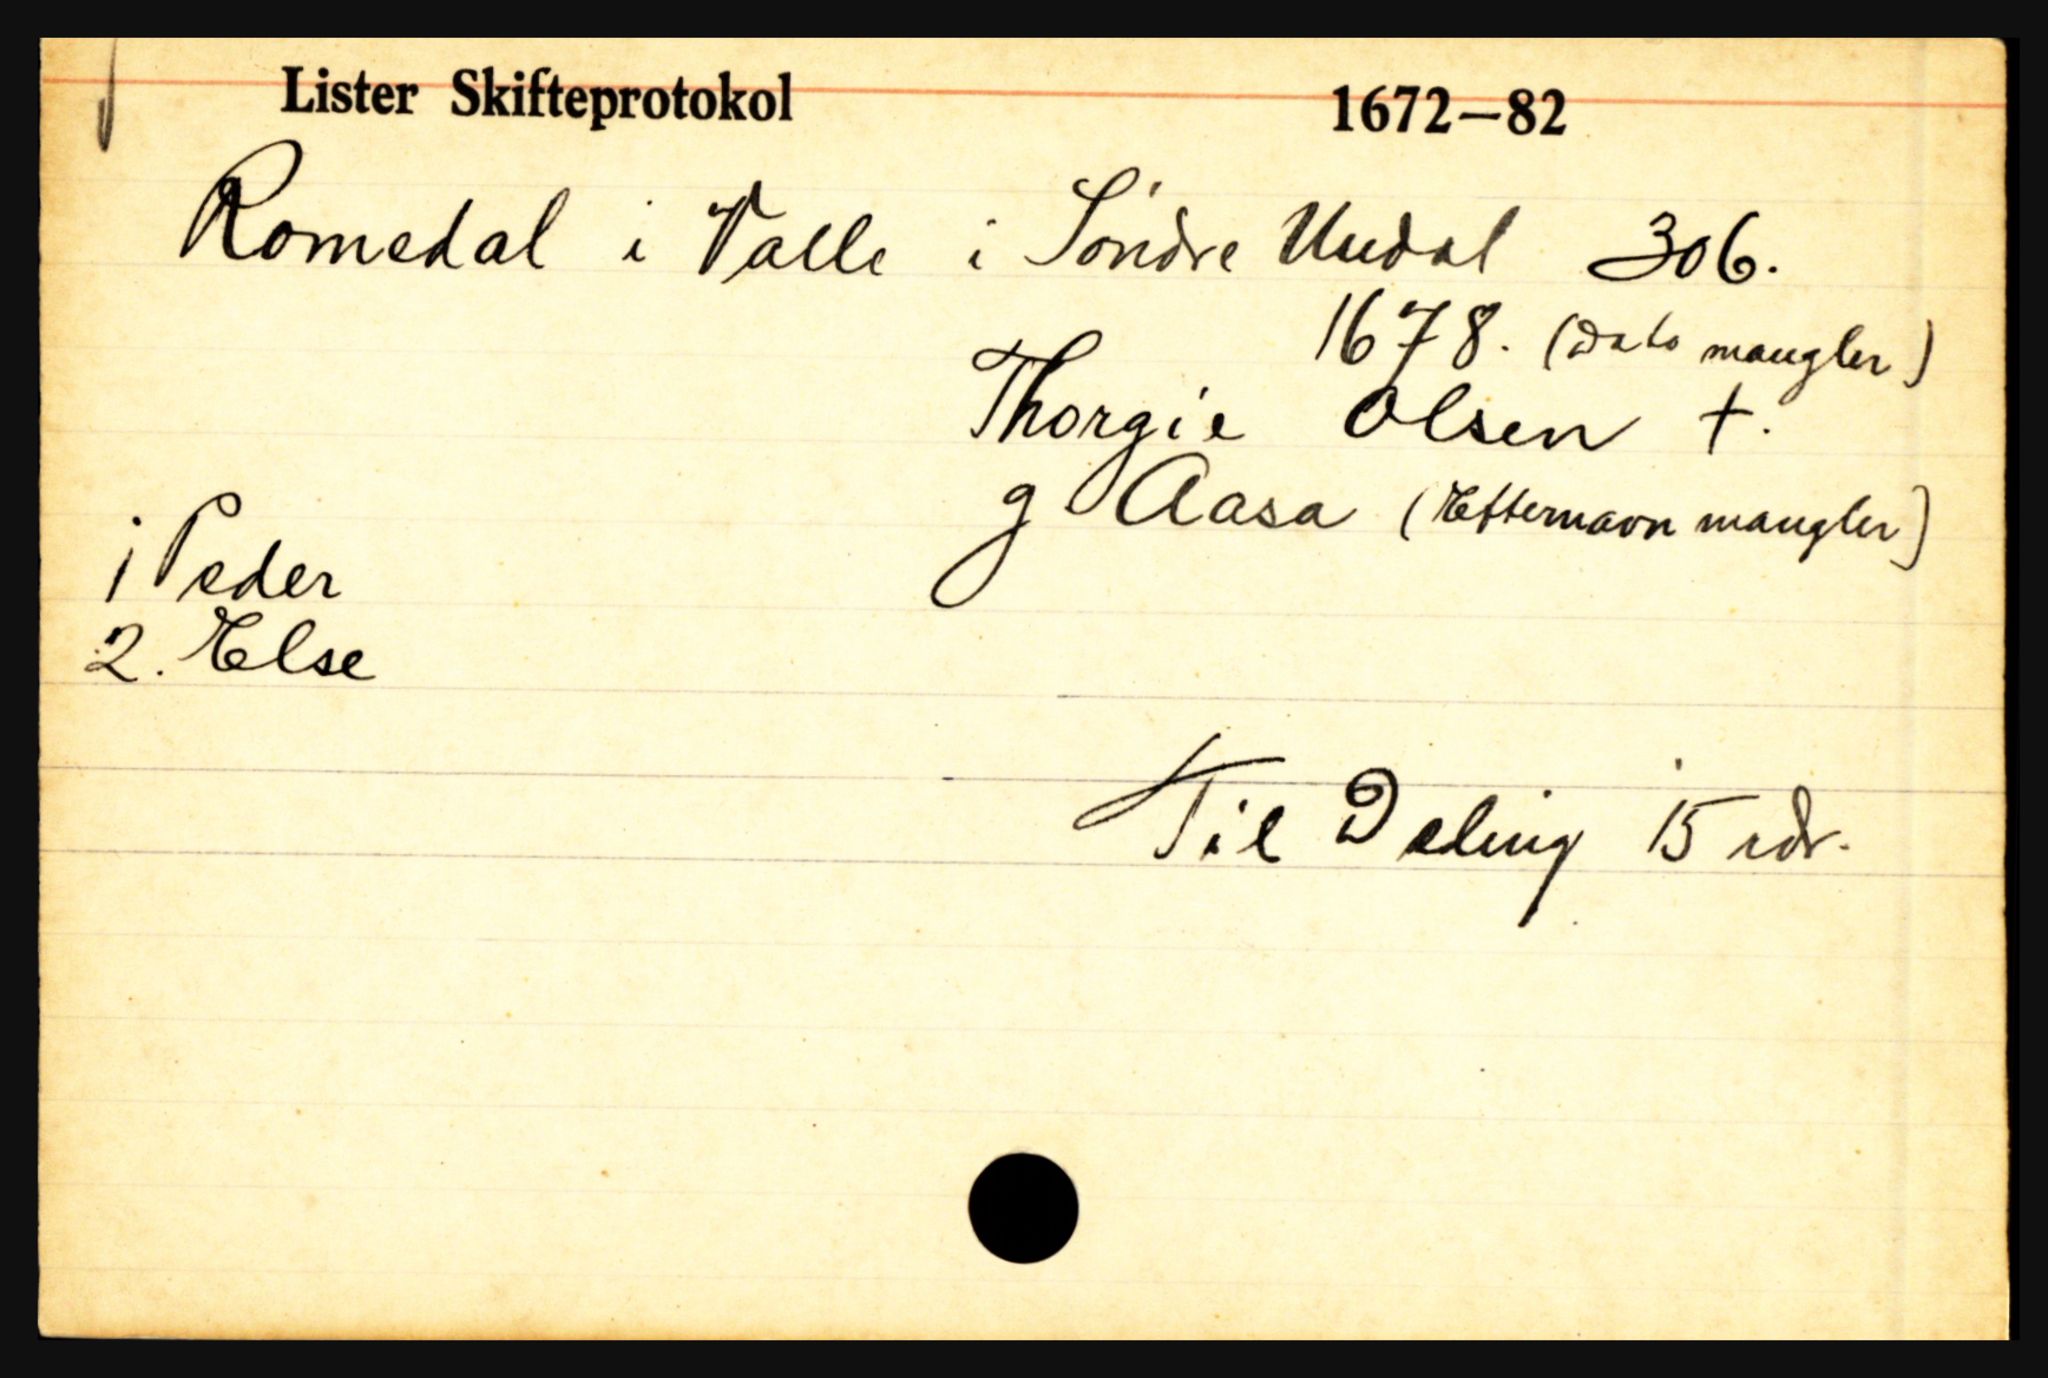 Lister Skifteprotokol 1672-82
Romedal i Valle i Söndre Undal 306.
1678. (Dato mangler)
Thorgie Olsen †.
g Aasa (Efternavn mangler)
1 Peder
2. Else
Til Deling 15 rdr.